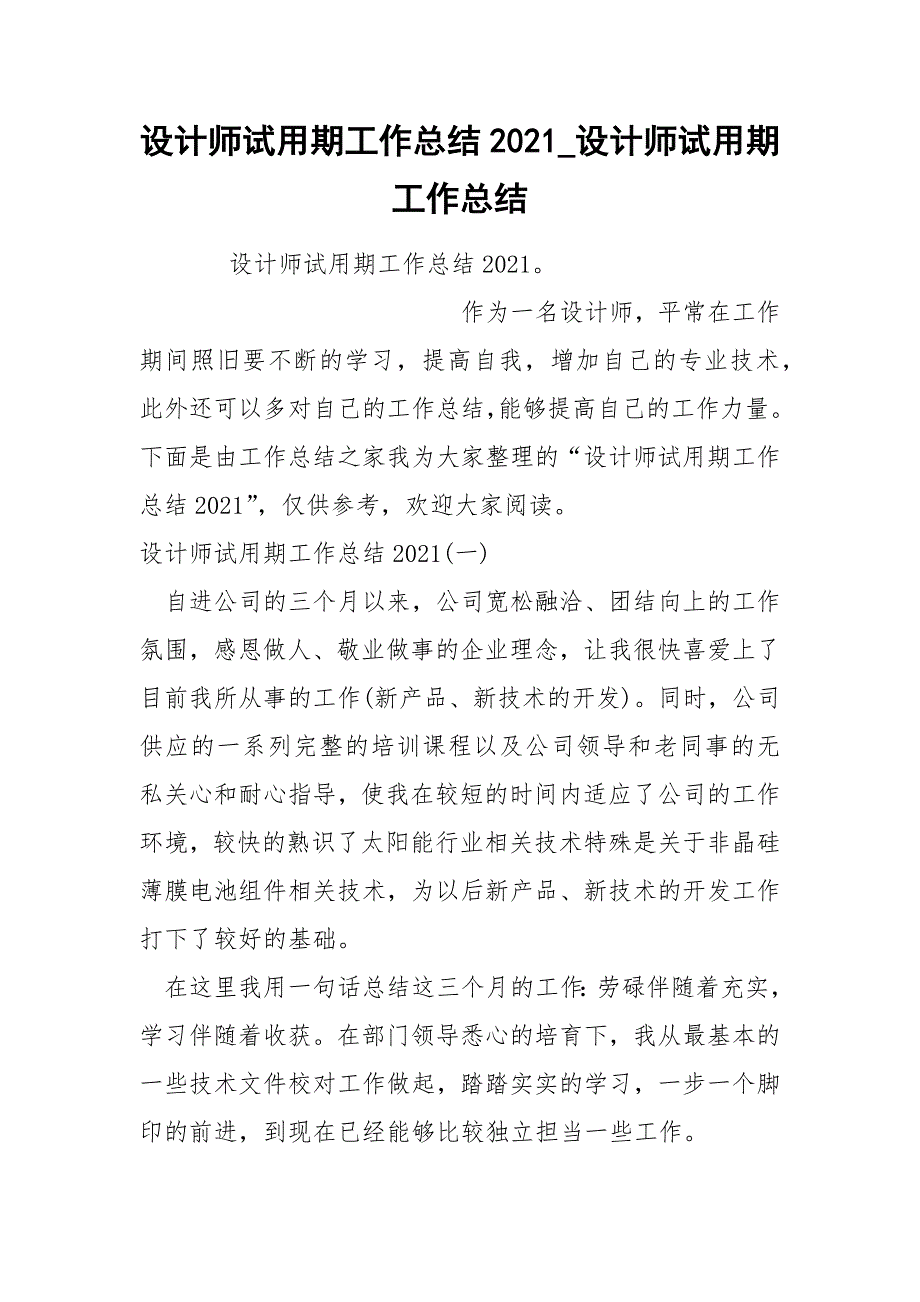 设计师试用期工作总结2021_设计师试用期
工作总结
设计师试用期工作总结2021。
作为一名设计师，平常在工作
期间照旧要不断的学习，提高自我，增加自己的专业技术，
此外还可以多对自己的工作总结，能够提高自己的工作力量。
下面是由工作总结之家我为大家整理的“设计师试用期工作
总结2021”，仅供参考，欢迎大家阅读。
设计师试用期工作总结2021(一)
自进公司的三个月以来，公司宽松融洽、团结向上的工作
氛围，感恩做人、敬业做事的企业理念，让我很快喜爱上了
目前我所从事的工作(新产品、新技术的开发)。同时，公司
供应的一系列完整的培训课程以及公司领导和老同事的无
私关心和耐心指导，使我在较短的时间内适应了公司的工作
环境，较快的熟识了太阳能行业相关技术特殊是关于非晶硅
薄膜电池组件相关技术，为以后新产品、新技术的开发工作
打下了较好的基础。
在这里我用一句话总结这三个月的工作：劳碌伴随着充实，
学习伴随着收获。在部门领导悉心的培育下，我从最基本的
一些技术文件校对工作做起，踏踏实实的学习，一步一个脚
印的前进，到现在已经能够比较独立担当一些工作。